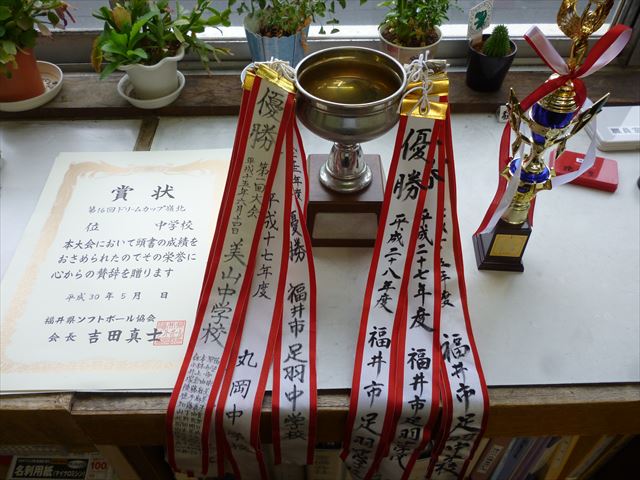 賞状
第16回ドリームカップ嶺北
位 中学校
本大会において頭書の成績を
おさめられたのでその栄誉に
心からの賛辞を贈ります
平成30年5月 日
福井県ソフトボール協会
会長 吉田真士
優勝
第一回大会
美山中学校
平成十七年度
丸岡中学校
優勝
福井市足羽中学校
優勝
平成二八年度
福井市足羽
平成二十七年度
福井市足羽中学校
福井市足羽中学校
名刺用紙
100